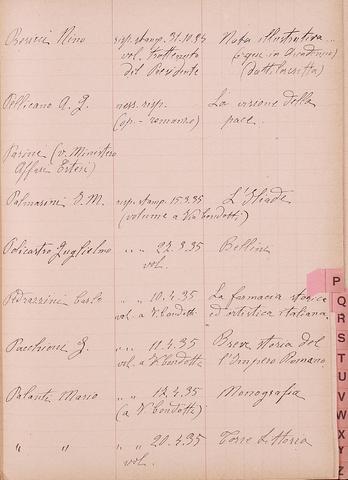 Nino risp. stamp. 31.10.34 Nota illustrativa
vol. trattenuto
dal Presidente (dattiloscritta)
Pellicano A. G. ness. risp. La visione della
(op. - romanzo) pace.
Parini (v. Ministero
Affari Esteri)
Palmarini I. M. risp. stamp. 15.3.35 L'Iliade
(volume a Via Condotti)
Policastro Guglielmo " " 22.3.35 Bellini
vol.
Pedrazzini Carlo " " 10.4.35 La farmacia storica
vol. a V. Condotti ed artistica italiana.
Pacchioni G. " " 11.4.35 Breve storia del
vol. a V. Condotti l'Impero Romano.
Palanti Mario " " 12.4.35 Monografia
(a V. Condotti)
" " " " 20.4.35 Torre Littoria
vol.
P
Q
R
S
T
U
V
W
X
Y
Z